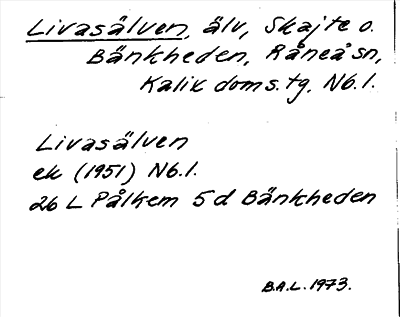 Livasälven, älv, Skajte o.
Bänkheden, Råneå sn,
Kalix doms.tg. Nb.l.
Livasälven
ek (1951) Nb.l.
26 L Pålkem 5d Bänkheden
B.A.L. 1973.